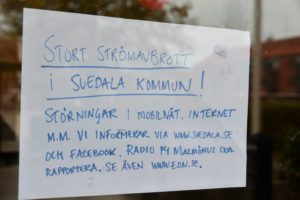 STORT STRÖMAVBROTT
I SVEDALA KOMMUN!
STÖRNINGAR I MOBILNÄT, INTERNET
M.M. VI INFORMERAR VIA WWW.SVEDALA.SE
OCH FACEBOOK. RADIO P4 MALMÖHUS SKA
RAPPORTERA. SE ÄVEN WWW.EON.SE.